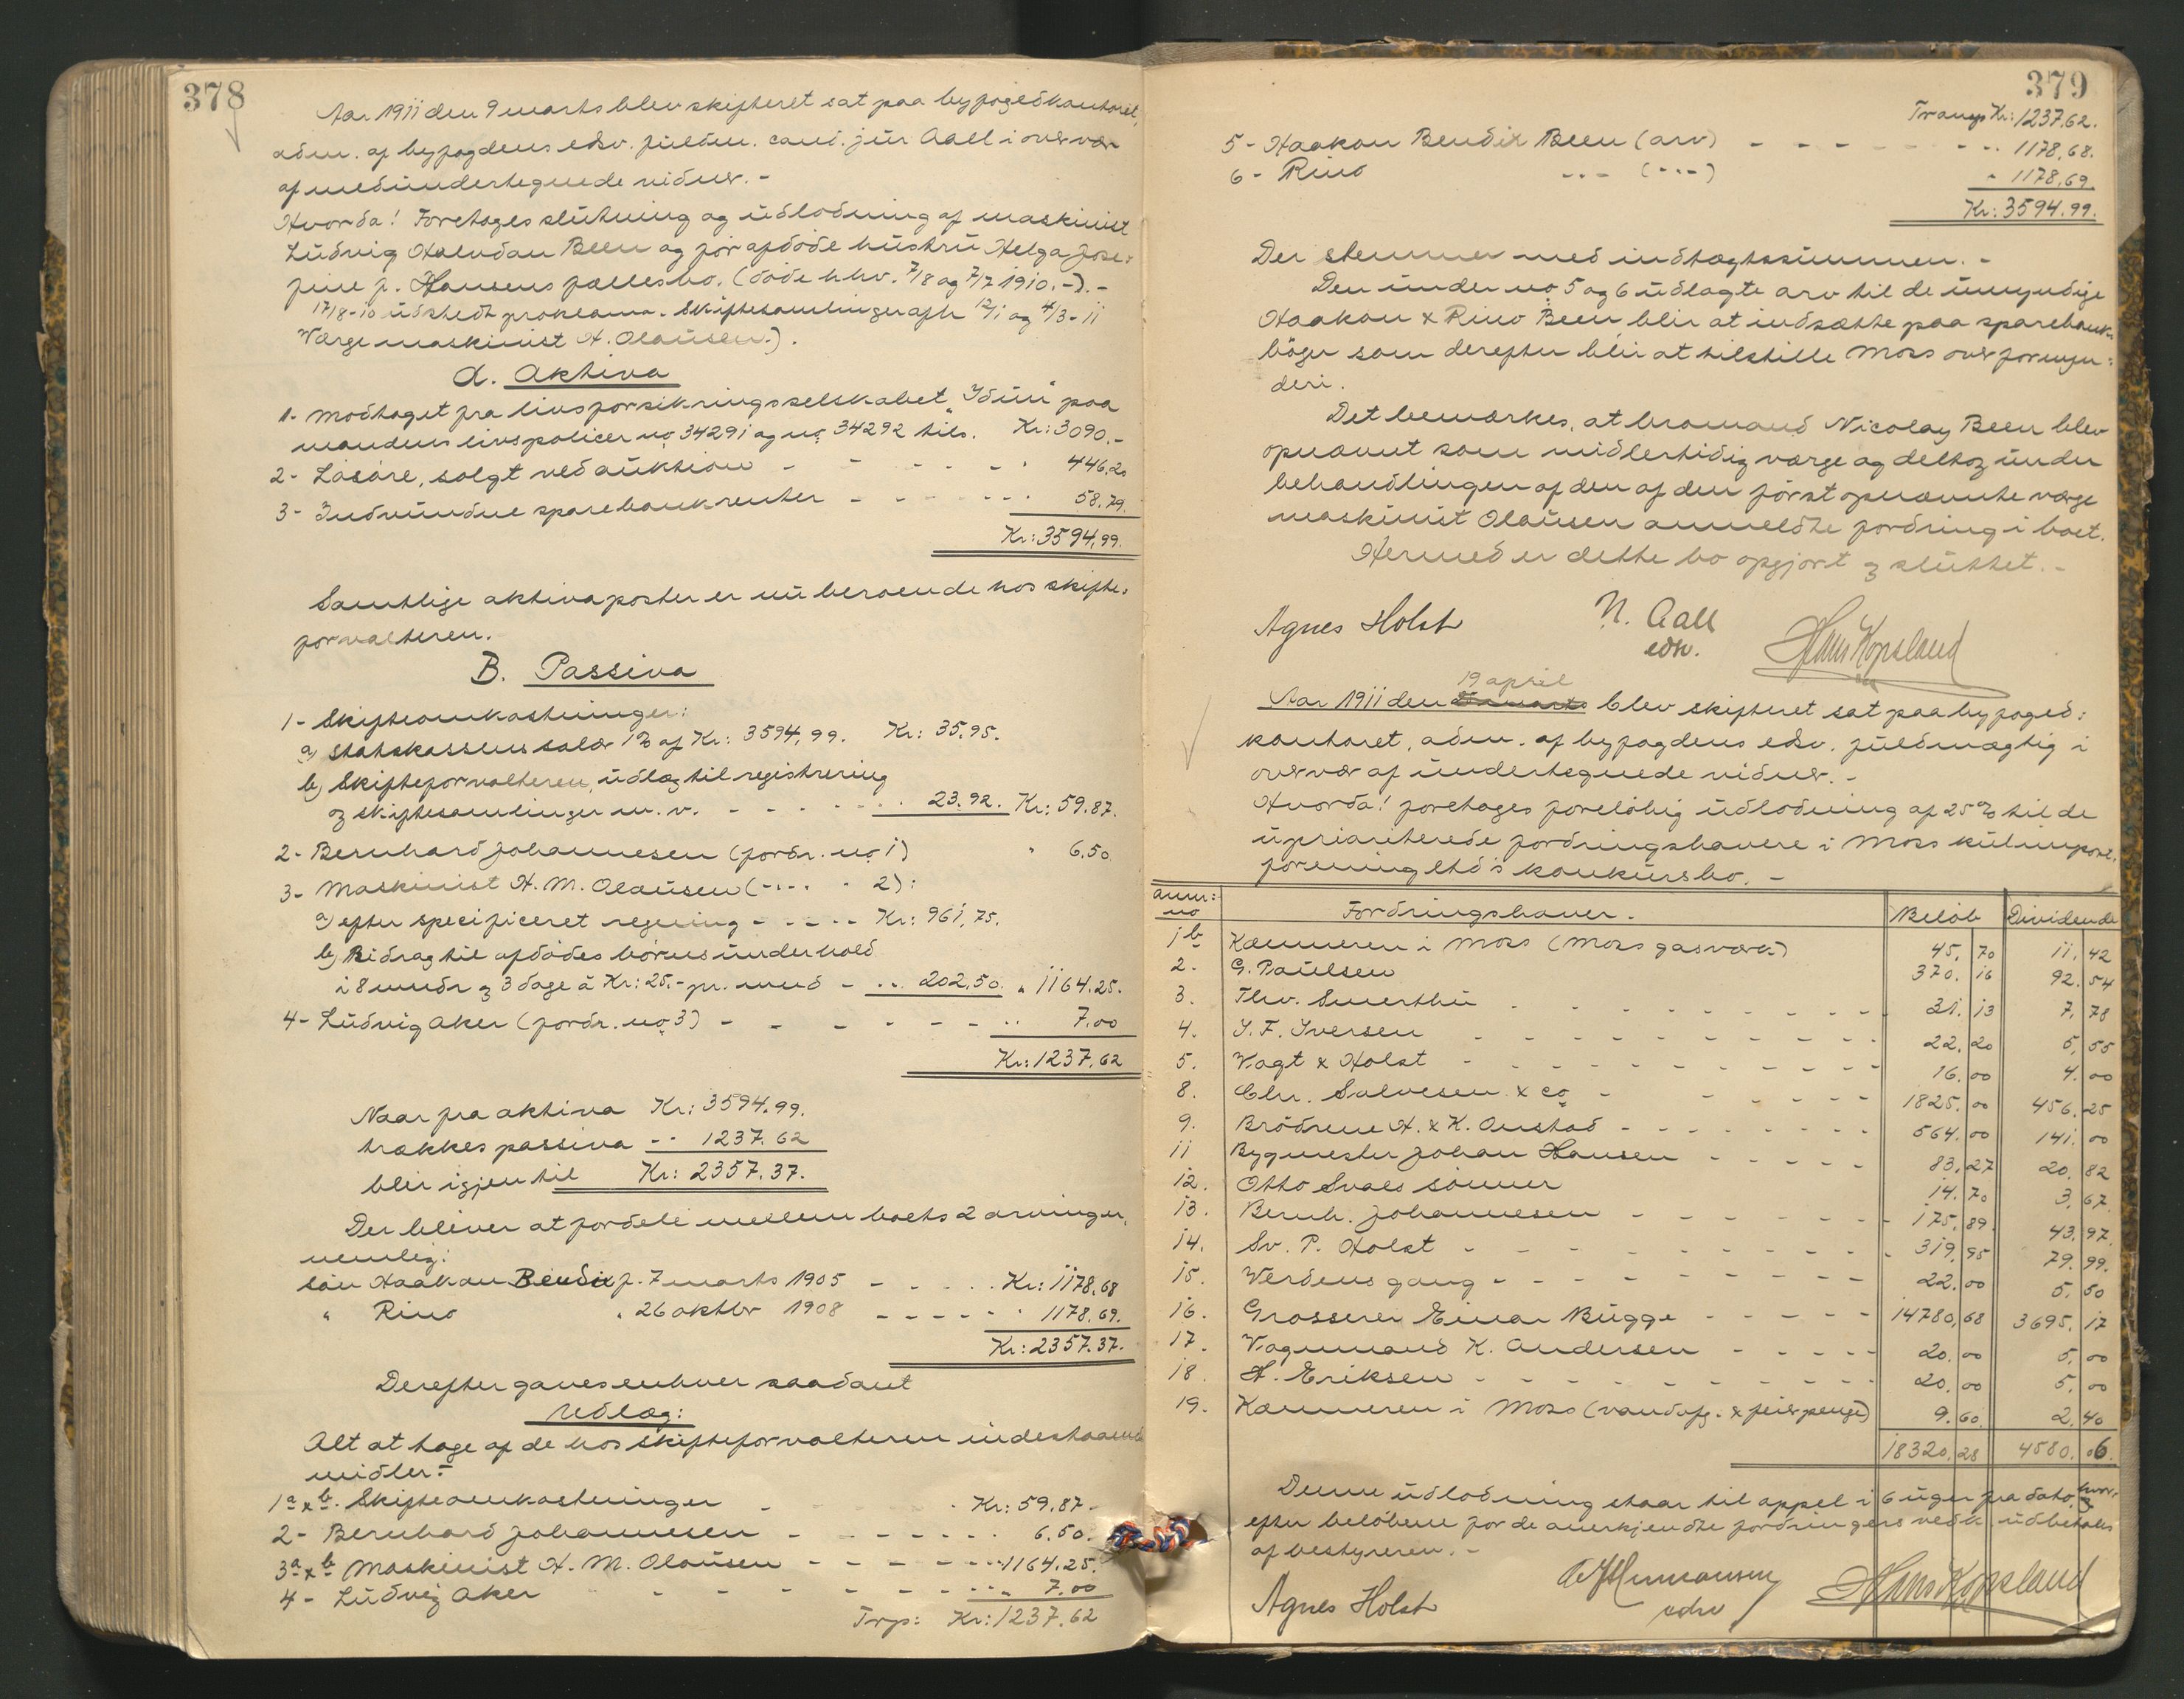 378
Aar 1911 den 9 marts blev skifteret sat paa byfogedkontoret,
adm. af byfogdens edsv. fuldm. cand. jur Aall i overvær
af medundertegnede vidner. -
Hvorda! Foretoges slutning og udlodning af maskinist
Ludvig Halvdan Been og før afdøde hustru Helga Jose:
fine f. Hansens fællesbo. (døde hhv. 7/8 og 7/7 1910. -). -
17/8-10 udstedt proklama. Skiftesamlinger afh 12/1 og 4/3-11
Værge maskinist H. Olausen.).
A. Aktiva
1- Modtaget fra livsforsikringsselskabet "Idun" paa
mandens livspolicer no 34291 og no 34292 tils. Kr: 3090.-
2- Løsøre, solgt ved auktion - - - - - " 446,20
3- Indvundne sparebankrenter - - - - - - 58.79.
Kr: 3594,99.
Samtlige aktivaposter er nu beroende hos skifte:
forvalteren.
B. Passiva
1- Skifteomkostninger:
a) Statskassens salær 1% af Kr: 3594,99. Kr: 35.95.
b) Skifteforvalteren, udlæg til registrering
og skiftesamlinger m. v. - - - - - - 23.92. Kr: 59.87.
2- Bernhard Johannesen (fordr. no 1) " 6,50
3- Maskinist H. M. Olausen (-"- - " 2):
a) efter specificeret regning - - - - - Kr: 961,75.
b) Bidrag til afdødes børns underhold
i 8 mndr og 3 dage à Kr: 25.- pr. mnd - - " 202,50. " 1164.25.
4- Ludvig Aker (fordr. no 3) - - - - - - " 7.00
Kr: 1237,62
Naar fra aktiva Kr: 3594.99.
trækkes passiva - " 1237.62
blir igjen til Kr: 2357.37.
Der bliver at fordele mellem boets 2 arvinger,
nemlig:
søn Haakon Bendix f. 7 marts 1905 - - - - - Kr: 1178,68
" Rino " 26 oktbr 1908 - - - - - " 1178.69.
Kr: 2357.37.
Derefter gaves enhver saadant
Udlæg:
Alt at tage af de hos skifteforvalteren indestaaende
midler:
1a & b. Skifteomkostninger - - - - - Kr: 59.87-
2- Bernhard Johannesen - - - - - - 6.50.
3a & b Maskinist H. M. Olausen - - - - - " 1164.25.
4- Ludvig Aker - - - - - - - " 7.00
Trp: Kr: 1237.62
379
Transp Kr: 1237.62.
5- Haakon Bendix Been (arv) - - - - - - - " 1178,68.
6- Rino -"- (-"-) " 1178,69.
Kr: 3594.99.
Der stemmer med indtægtssummen. -
Den under no 5 og 6 udlagte arv til de umyndige
Haakon & Rino Been blir at indsætte paa sparebank-
bøger som derefter blir at tilstille Moss overformyn:
deri.
Det bemærkes, at bromand Nicolay Been blev
opnævnt som midlertidig værge og deltog under
behandlingen af den af den først opnævnte værge
maskinist Olausen anmeldte fordring i boet.
Hermed er dette bo opgjort og sluttet. -
Agnes Holst N. Aall Hans Kopsland
edsv.
19 april
Aar 1911 den blev skifteret sat paa byfoged:
kontoret, adm. af byfogdens edsv. fuldmægtig i
overvær af undertegnede vidner. -
Hvorda! foretoges foreløbig udlodning af 25% til de
upriariterede fordringshavere i Moss kulimport,
forening ltd's konkursbo. -
anm: no Fordringshaver. Beløb Dividende
1b Kæmneren i Moss (Moss gasværk) 45,70 11,42
2. G. Paulsen 370.16 92.54
3. Thv. Smerthu - - - - - - - - 31.13 7,78
4. J. F. Iversen - - - - - - - - 22.20 5,55
5. Vogt & Holst - - - - - - - - 16.00 4.00
8. Chr. Salvesen & co - - - - - - 1825.00 456.25
9. Brödrene A. & K. Onstad - - - - - - - 564.00 141.00
11 Bygmester Johan Hansen - - - - - 83,27 20,82
12. Otto Svaes sønner 14.70 3,67
13. Bernh. Johannesen - - - - - - 175,89. 43,97
14. Sv. P. Holst - - - - - - - - 319,95 79.99.
15. Verdens gang - - - - - - - - 22.00 5,50
16. Grosserer Einar Bugge - - - - - 14780,68 3695.17
17. Vognmand K. Andersen - - - - - 20.00 5,00
18. H. Eriksen - - - - - - - - 20,00 5,00
19. Kæmneren i Moss (vandafg. & feierpenge) 9.60 2,40
18320,28 4580.06
Denne udlodning staar til appel i 6 uger fra dato, hvor-
efter beløbene for de anerkjendte fordringers vedk. udbetales
af bestyreren. -
Agnes Holst Hans Kopsland
edsv